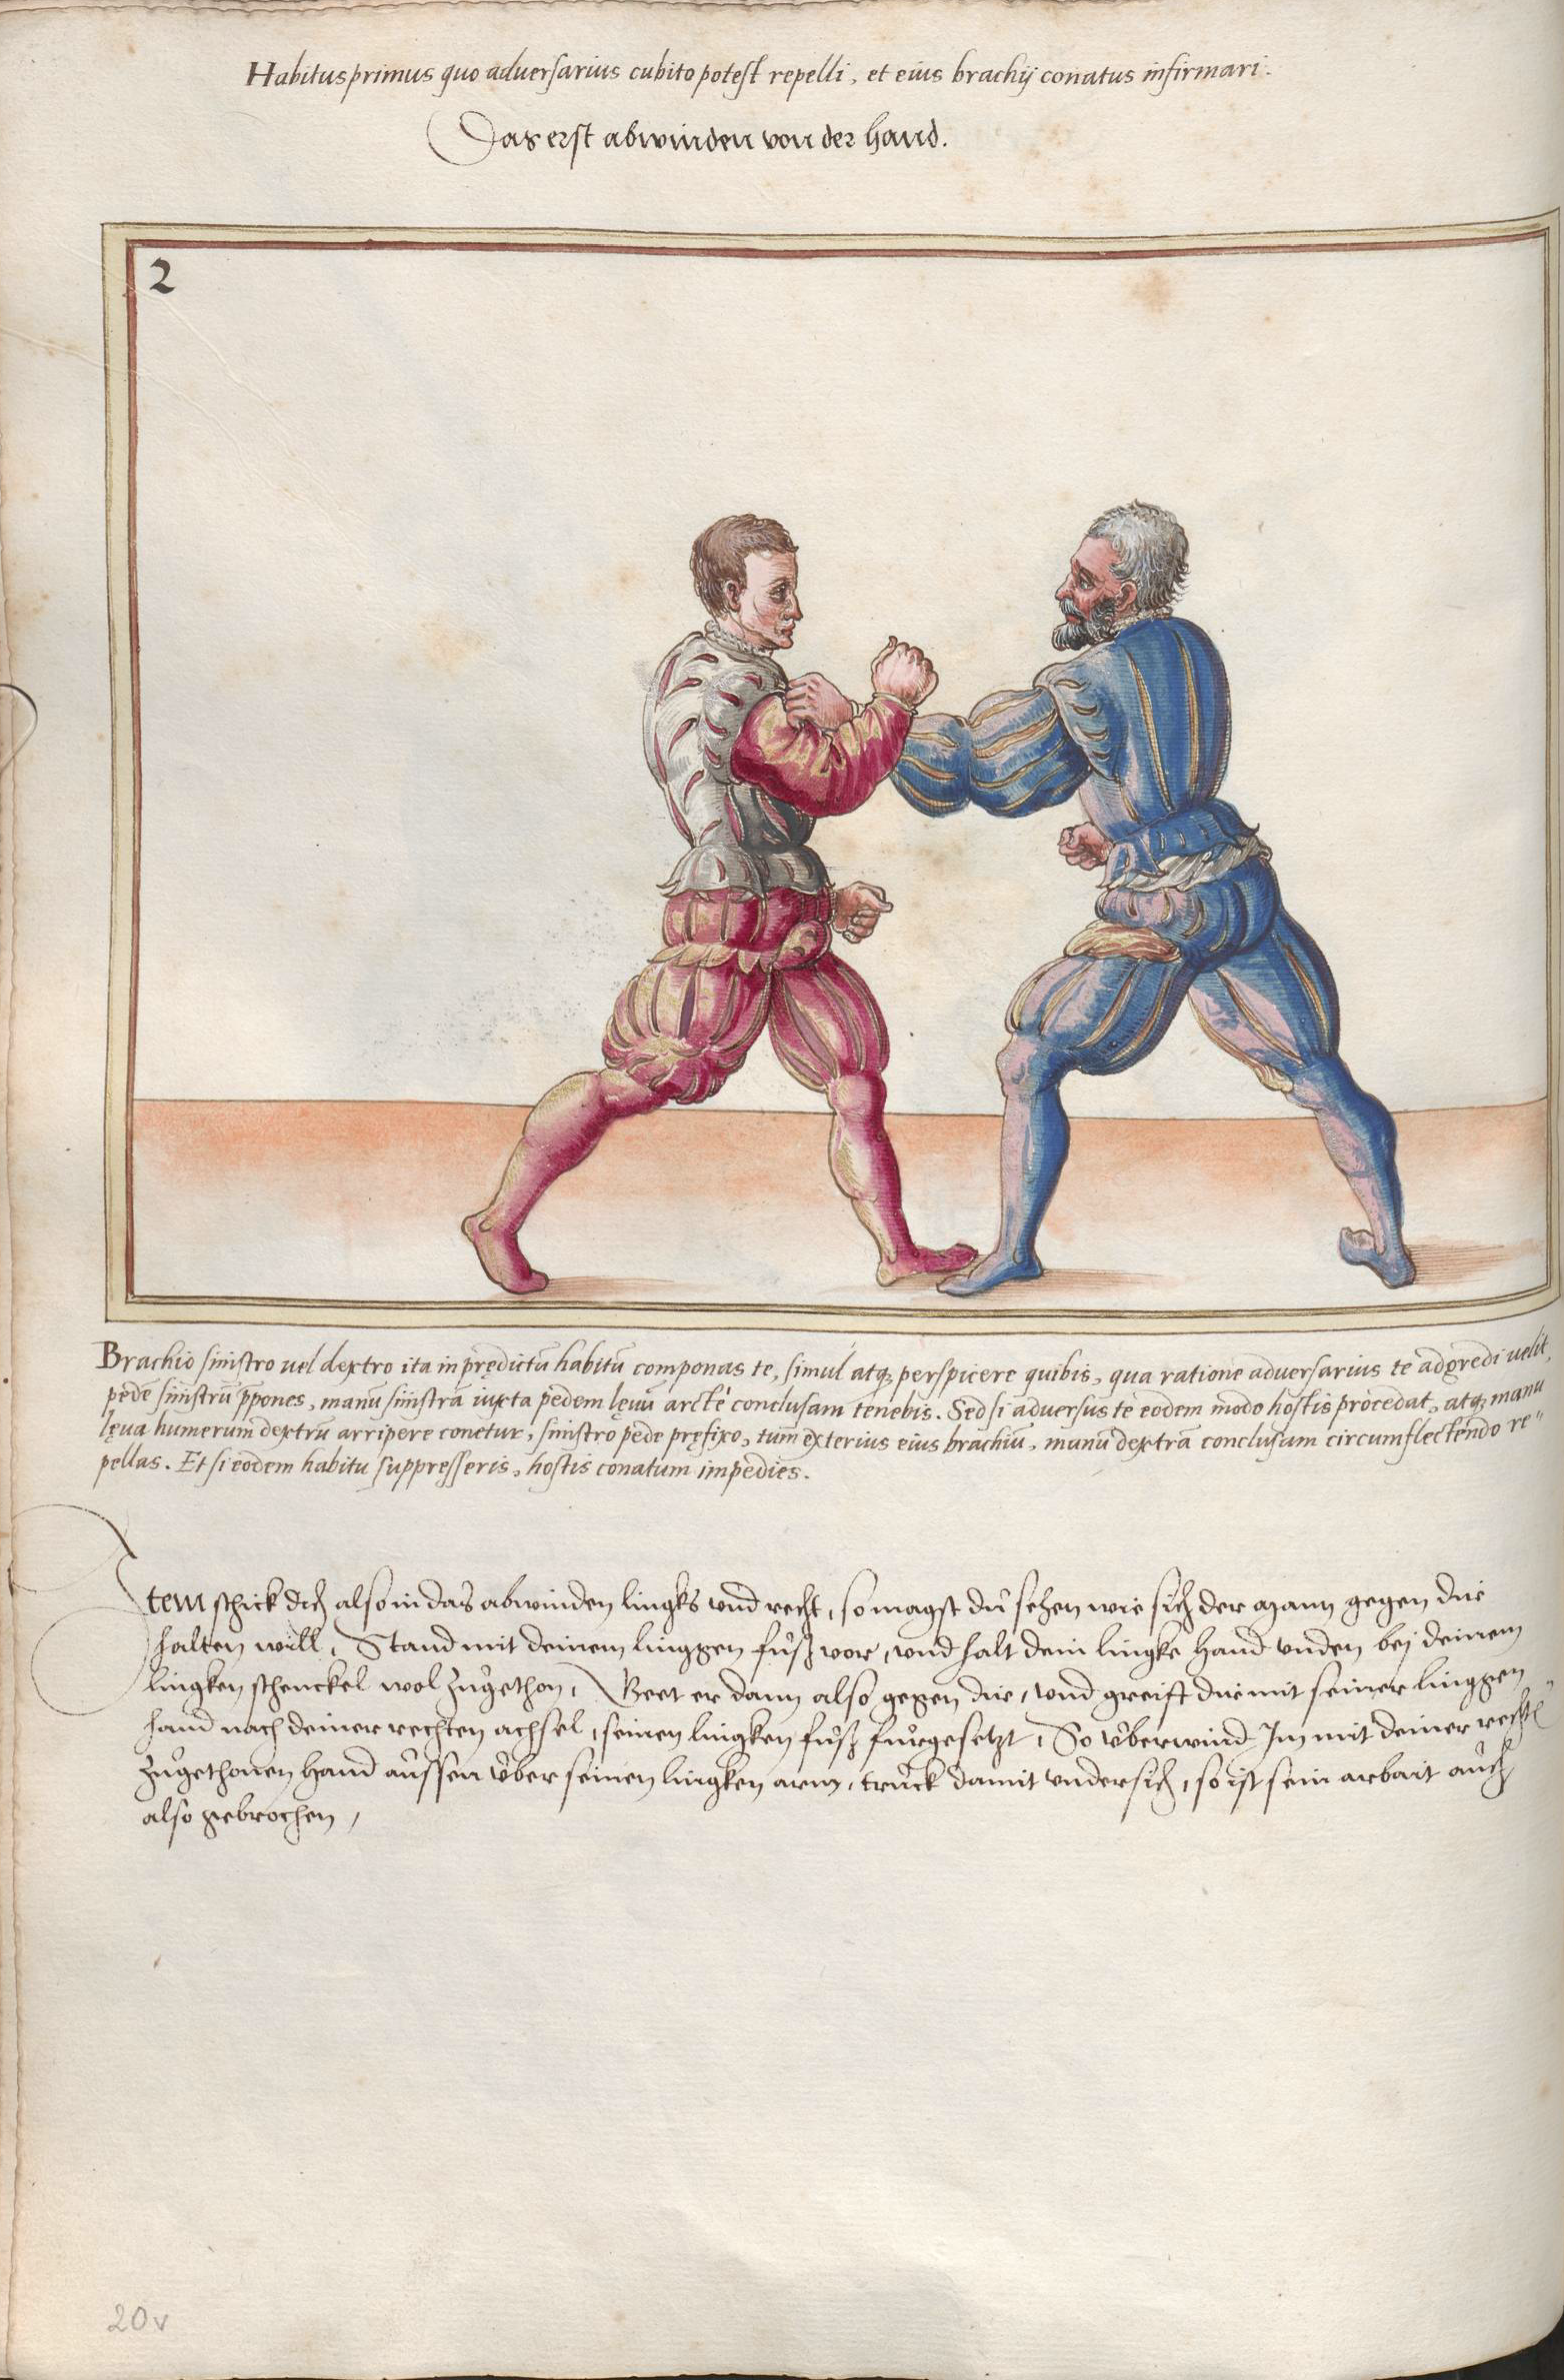 Habitus primus quo adversarius cubito potest repelli, et eius brachij conatus infirmari.
Das erst abwinden von der hand.
2
Brachio sinistro vel dextro ita in prędictū habitū componas te, simul atq; perspicere quibis, qua ratione adversarius te adgredi velit,
pedē sinistrū ppones, manū sinistrā iuxta pedem lęvū arctè conclusam tenebis. Sed si adversus te eodem modo hostis procedat, atq; manu
lęva humerum dextrū arripere conetur, sinistro pede pręfixo, tum exterius eius brachiū, manū dextrā conclusam circumflectendo re"
pellas. Et si eodem habitu suppresseris, hostis conatum impedies.
Item schick dich also in das abwinden lingks vnd recht, so magst dů sehen wie sich der mann gegen dir
halten will, Stand mit deinem linggen fůß vor, vnd halt dein lingke hand vnden bej deinem
lingken schenckel wol zůgethon, Geet er dann also gegen dir, vnd greift dir mit seiner linggen
hand nach deiner rechten achsel, seinen lingken fůß fürgesetzt, So überwind Im mit deiner rechtē
zůgethonen hand aussen über seinen lingken arm, truck damit vndersich, so ist sein arbait auch
also gebrochen,
20v